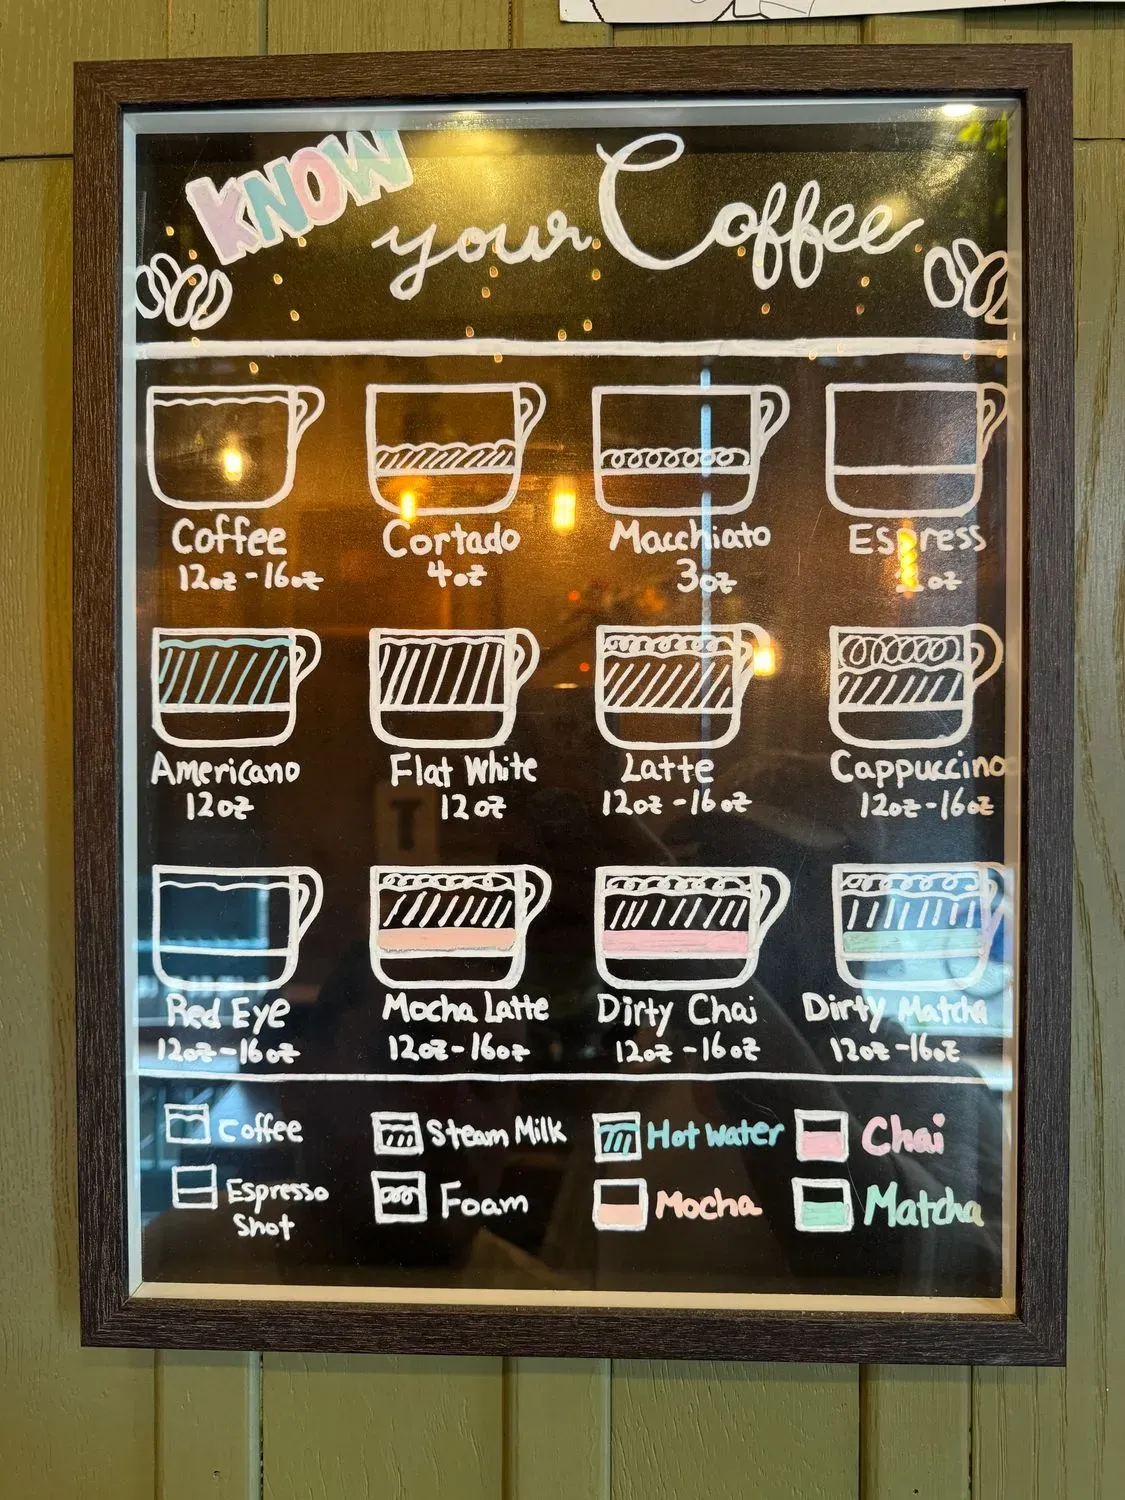 KNOW your Coffee
Coffee
12oz - 16oz
Cortado
4oz
Macchiato
3oz
oz
Americano
12oz
Flat White
12oz
Latte
12oz - 16oz
Cappuccino
12oz - 16oz
Red Eye
12oz - 16oz
Mocha Latte
12oz - 16oz
Dirty Chai
12oz - 16oz
Dirty Matcha
12oz - 16oz
Coffee
Steam Milk
Hot water
Chai
Espresso
Shot
Foam
Mocha
Matcha